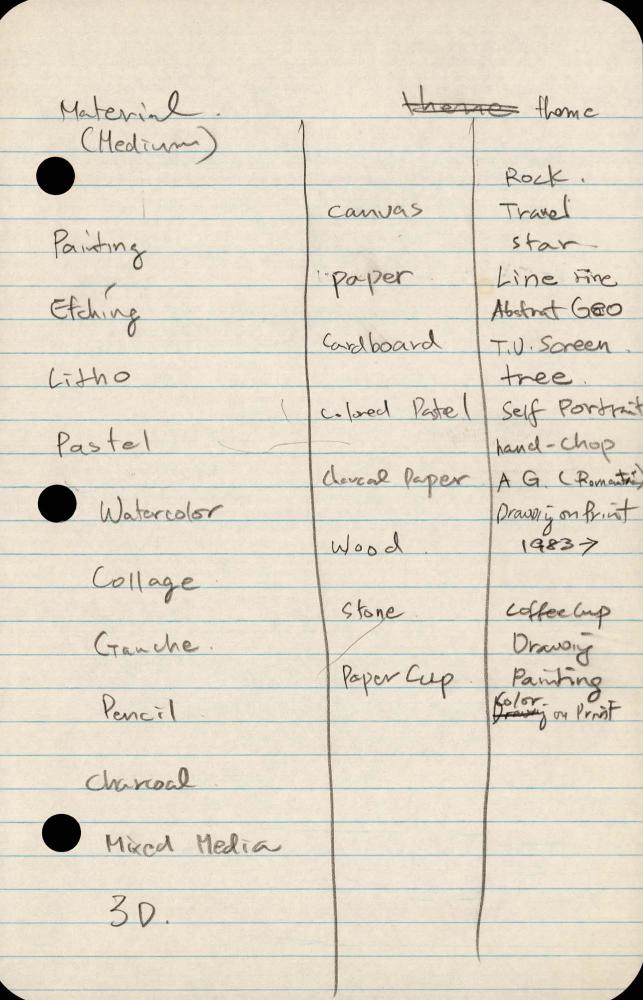 Material.
(Medium)
Painting
Etching
Litho
Pastel
Watercolor
Collage
Gauche.
Pencil
Charcoal
Mixed Media
3D.
canvas
paper
Cardboard
Colored Patel
charcoal Paper
Wood
Stone
Paper Cup
theme theme
Rock.
Travel
star
Line Fine
Abstrat GEO
T.V. Screen.
tree.
Self Portrait
hand-chop
A G. (Romantic)
Drawing on Print
1983→
Coffee Cup
Drawing
Painting
Color
Drawing on Print